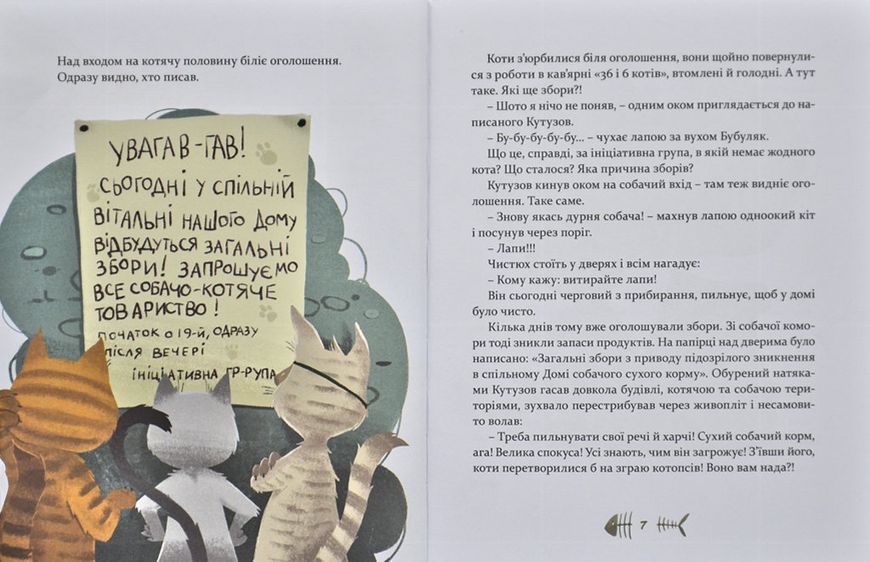 Над входом на котячу половину біліє оголошення.
Одразу видно, хто писав.
УВАГАВ-ГАВ!
СЬОГОДНІ У СПІЛЬНІЙ
ВІТАЛЬНІ НАШОГО ДОМУ
ВІДБУДУТЬСЯ ЗАГАЛЬНІ
ЗБОРИ! ЗАПРОШУЄМО
ВСЕ СОБАЧО-КОТЯЧЕ
ТОВАРИСТВО!
ПОЧАТОК О 19-Й, ОДРАЗУ
ПІСЛЯ ВЕЧЕРІ
ІНІЦІАТИВНА ГР-РУПА
Коти з’юрбилися біля оголошення, вони щойно повернули-
ся з роботи в кав’ярні «36 і 6 котів», втомлені й голодні. А тут
таке. Які ще збори?!
– Шото я нічо не поняв, – одним оком приглядається до на-
писаного Кутузов.
– Бу-бу-бу-бу-бу... – чухає лапою за вухом Бубуляк.
Що це, справді, за ініціативна група, в якій немає жодного
кота? Що сталося? Яка причина зборів?
Кутузов кинув оком на собачий вхід – там теж видніє ого-
лошення. Таке саме.
– Знову якась дурня собача! – махнув лапою одноокий кіт
і посунув через поріг.
– Лапи!!!
Чистюх стоїть у дверях і всім нагадує:
– Кому кажу: витирайте лапи!
Він сьогодні черговий з прибирання, пильнує, щоб у домі
було чисто.
Кілька днів тому вже оголошували збори. Зі собачої комо-
ри тоді зникли запаси продуктів. На папірці над дверима було
написано: «Загальні збори з приводу підозрілого зникнення
в спільному Домі собачого сухого корму». Обурений натяка-
ми Кутузов гасав довкола будівлі, котячою та собачою тери-
торіями, зухвало перестрибував через живопліт і несамови-
то волав:
– Треба пильнувати свої речі й харчі! Сухий собачий корм,
ага! Велика спокуса! Усі знають, чим він загрожує! З’ївши його,
коти перетворилися б на зграю котопсів! Воно вам нада?!
7